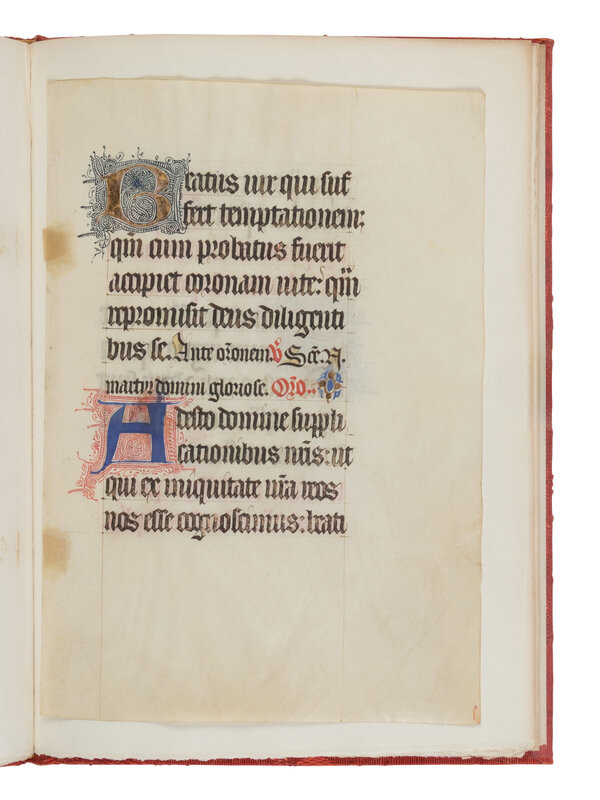 Beatus uir qui suf
fert temptationem:
qm̄ cum probatus fuerit
accipiet coronam uite: quā
repromisit deus diligenti
bus se. Ante or̄onem. V̄ Sc̄e. N.
martyr domini gloriose. Or̄o.
Adesto domine suppli
cationibus nr̄is: ut
qui ex iniquitate nr̄a reos
nos esse cognoscimus: beati